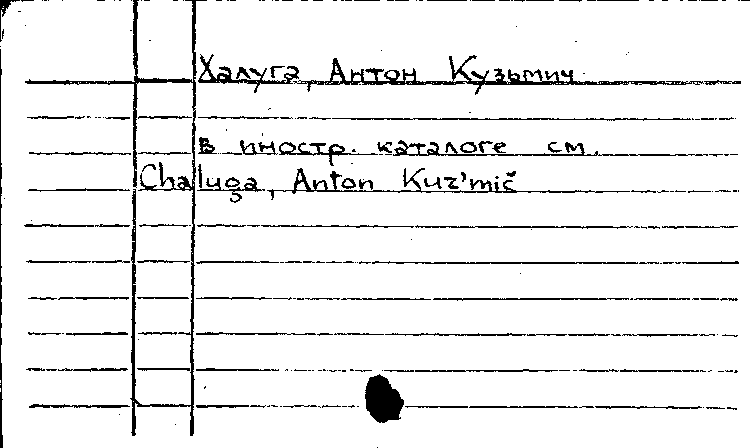 Халуга, Антон Кузьмич
в иностр. каталоге см.
Chaluga, Anton Kuz'mič